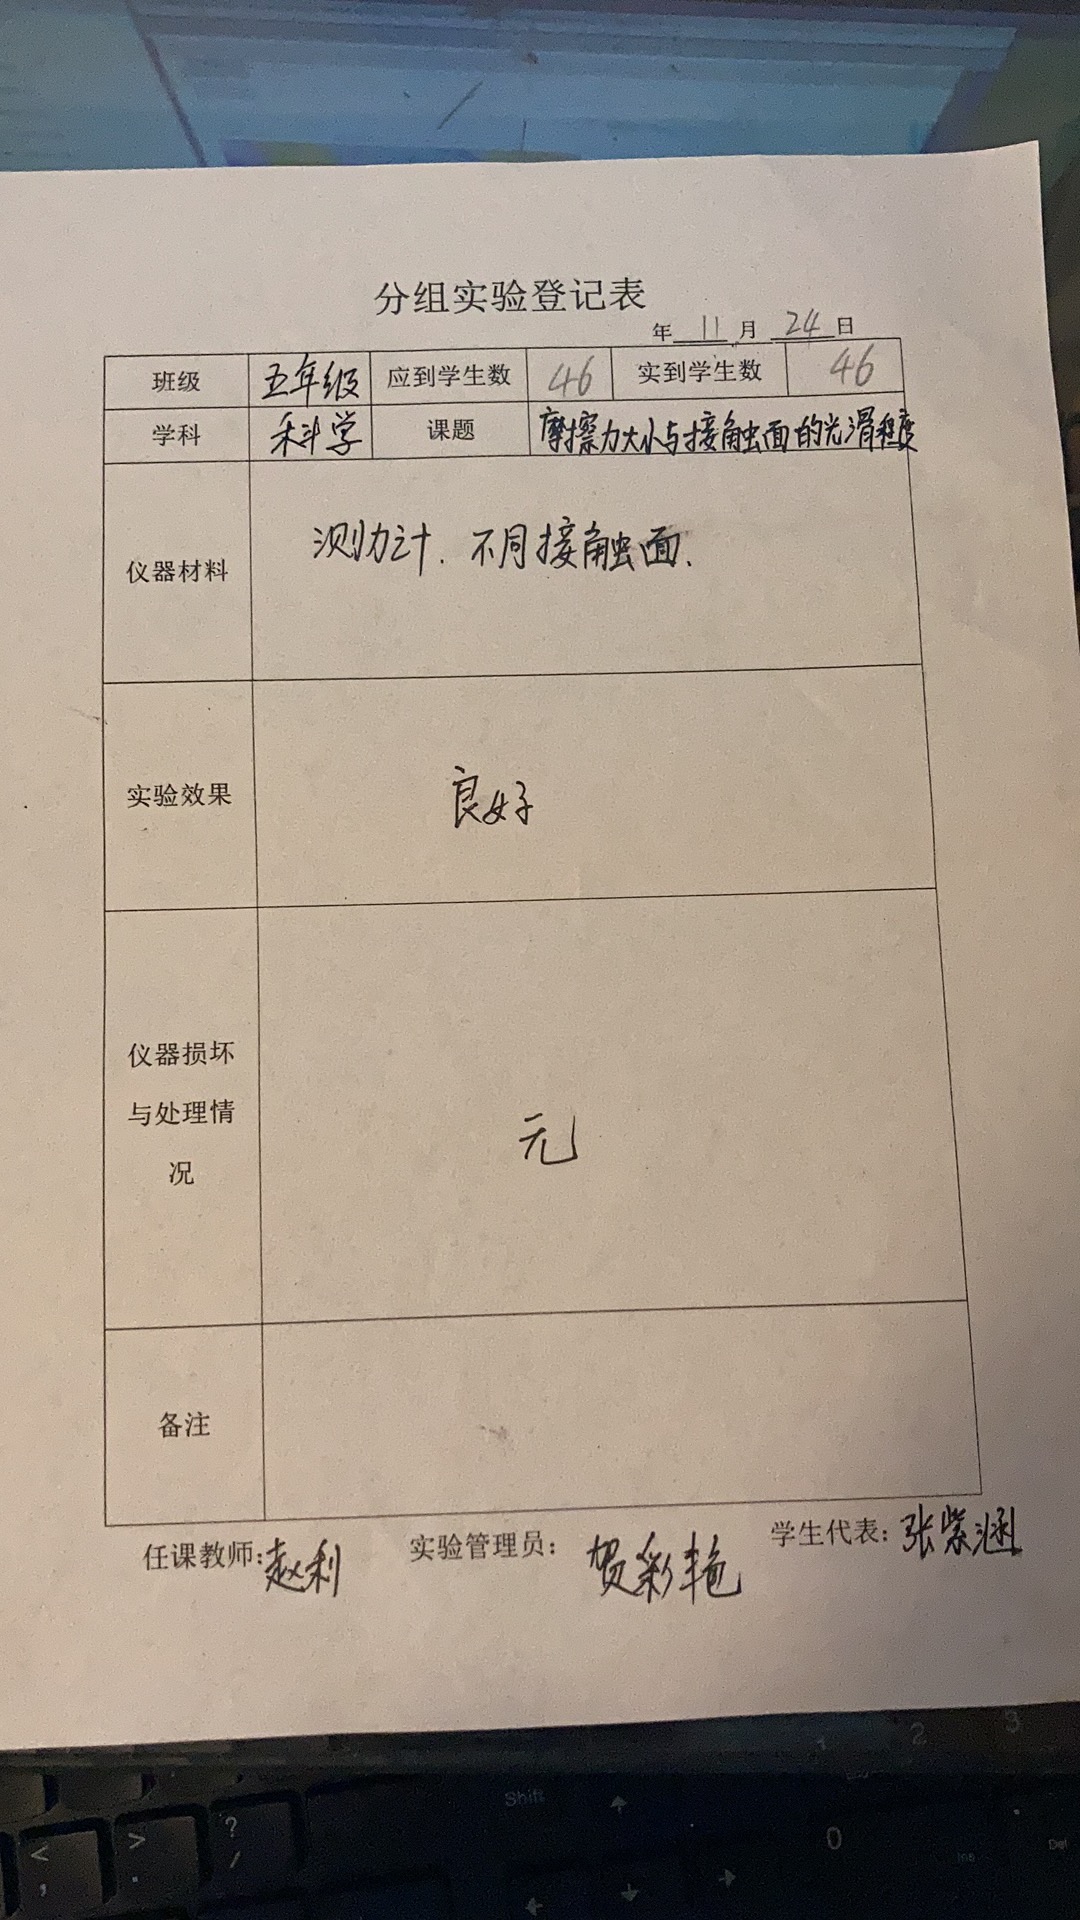 分组实验登记表
年 11 月 24 日
班级 五年级 应到学生数 46 实到学生数 46
学科 科学 课题 摩擦力大小与接触面的光滑程度
仪器材料 测力计. 不同接触面.
实验效果 良好
仪器损坏
与处理情
况
无
备注
任课教师:赵利 实验管理员: 贺彩艳 学生代表:张紫涵
1 2 3
Shift ↑ 0 Ins . Del
< , > . ? / ← ↓ →